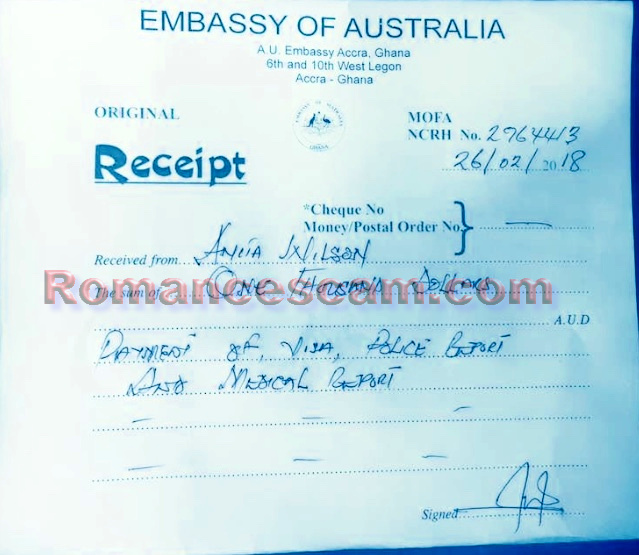 EMBASSY OF AUSTRALIA
A.U. Embassy Accra, Ghana
6th and 10th West Legon
Accra - Ghana
ORIGINAL
MOFA
GHANA
NCRH No. 2764413
Receipt
26/02/2018
*Cheque No
Money/Postal Order No.
Received from Anita Wilson
The sum of One Thousand Dollars
Romancescam.com
A.U.D
Payment of, Visa, Police Report
And Medical Report
Signed